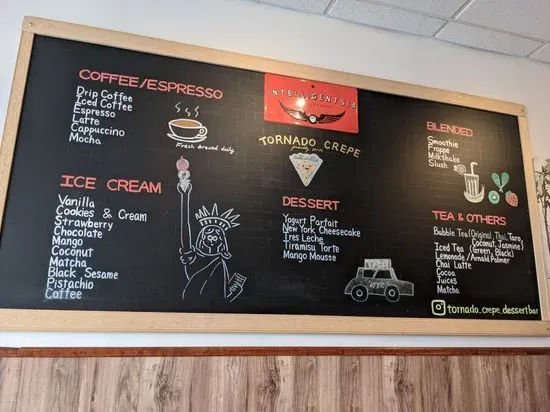 COFFEE/ESPRESSO
Drip Coffee
Iced Coffee
Espresso
Latte
Cappuccino
Mocha
Fresh Brewed daily
ICE CREAM
Vanilla
Cookies & Cream
Strawberry
Chocolate
Mango
Coconut
Matcha
Black Sesame
Pistachio
Coffee
INTELLIGENTSIA
TORNADO CREPE
proudly serve
DESSERT
Yogurt Parfait
New York Cheesecake
Tres Leche
Tiramisu Torte
Mango Mousse
NYC
BLENDED
Smoothie
Frappe
Milkshake
Slush
TEA & OTHERS
Bubble Tea (Original, Thai, Taro,
Coconut, Jasmine)
Iced Tea (Green, Black)
Lemonade/Arnald Palmer
Chai Latte
Cocoa
Juices
Matcha
tornado_crepe_dessertbar